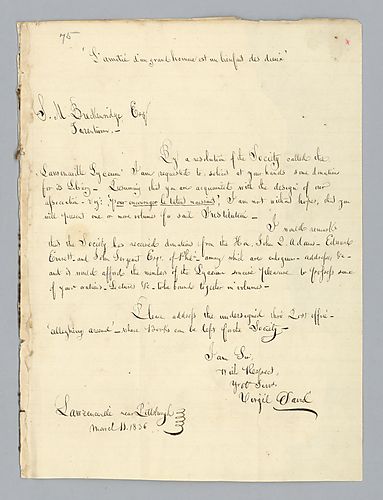 75
"L'amitié d'un grand homme est un bienfait des dieux"
Esqr
Tarentum. —
By a resolution of the Society called the
Lawrenceville Lyceum I am requested to solicit at your hands some donations
for its Library — Presuming that you are acquainted with the design of our
association — Viz:
I am not without hopes, that you
will present one or more volumes to said Institution —
I would remark
that the Society has received donations from the Hon. John Q. Adams — Edward
Everett — and John Sergeant Esqr. of
and it would afford the members of the Lyceum sincere pleasure to possess some
of your orations — Lectures &c — to be bound together in volumes —
Please address the undersigned thro' Post office
"Allegheny arsenal" — where Books can be left for the Society —
I am Sir,
With Respect,
Your Obt Serv
Virgil David
Lawrenceville near Pittsburgh
March 11. 1836